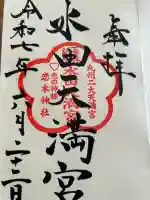 奉拝
九州二大天満宮
水田天満宮
恋の神様
恋木神社
令和七年八月二十二日